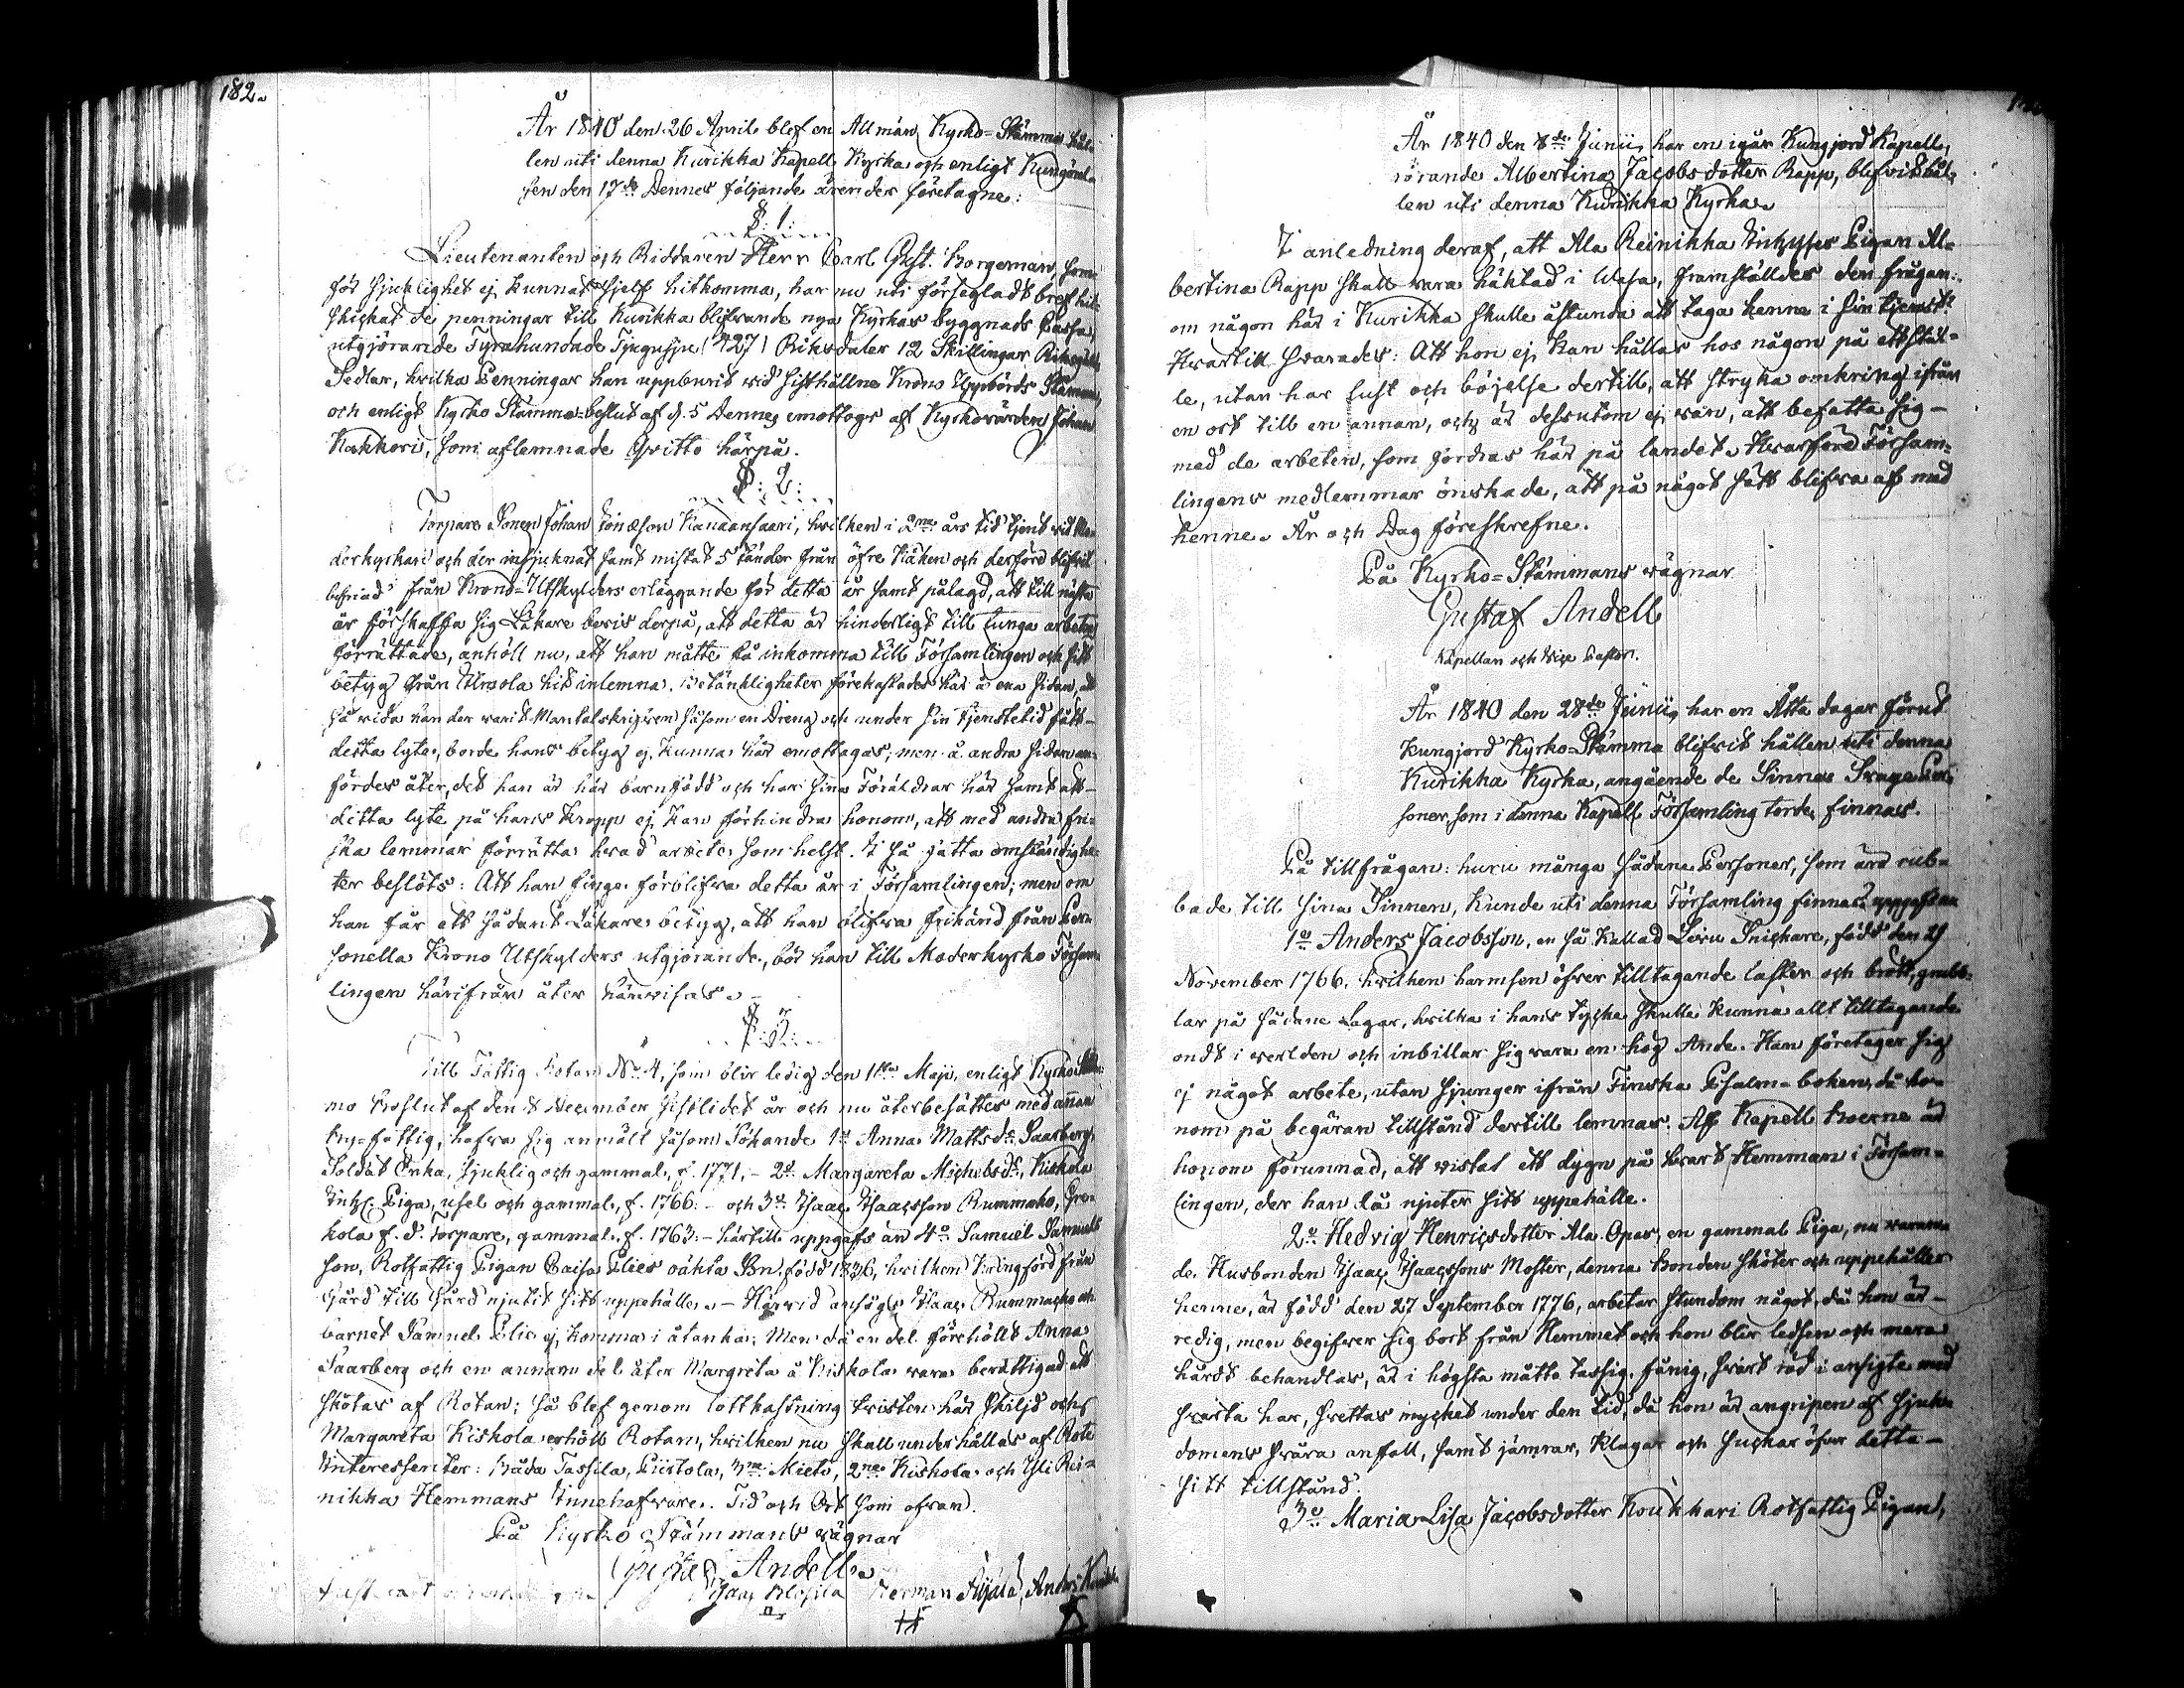 182.
År 1840 den 26 April blef en Allmän Kyrko-Stämma hål-
len uti denna Kurikka Kapell Kyrka och enligt Kungörel-
sen den 17de Dennes följande ärender företagne:
§: 1:
Lieutenanten och Riddaren Herr Carl Gust. Borgeman, som
för sjuklighet ej kunnat sjelf hitkomma, har nu uti försegladt bref hit
skickat de penningar till Kurikka blifvande nya Kyrkas byggnads Cassa,
utgjörande Fyrahundrade Tjugusju (427) Riksdaler 12 Skillingar Riksgälds
Sedlar, hvilka Penningar han uppburit vid sisthållne Krono Uppbörds Stämman,
och enligt Kyrko Stämmo-beslut af d. 5 Dennes emottogs af Kyrkovärden Johan
Kakkori, som aflemnade Qvitto härpå.
§: 2:
Torpare Sonen Johan Jonæson Kandansaari, hvilken i 2ne års tid tjent vid Mo-
derkyrkan och der insjuknat samt mistat 5 tänder från öfre Käken och derföre blifvit
befriad från Krono-Utskylders erläggande för detta år samt pålagd, att till nästa
år förskaffa sig Läkare bevis derpå, att detta är hinderligt till tunga arbeten
förrättade, anhöll nu, att han måtte få inkomma till Församlingen och sitt
betyg från Ilmola hit inlemna. Betänkligheter förekastades här å ena sidan, att
så vida han der varit Mantalskrifven såsom en Dreng och under sin tjenstetid fått
detta lyte, borde hans betyg ej kunna här emottagas; men å andra sidan an-
fördes åter, det han är här barnfödd och har sina Föräldrar här samt att
detta lyte på hans kropp ej kan förhindra honom, att med andra fri-
ska lemmar förrätta hvad arbete som helst. I så fatta omständighe-
ter beslöts: Att han finge förblifva detta år i Församlingen; men om
han får ett sådant Läkare betyg, att han blifva frikänd från Per-
sonella Krono Utskylders utgjörande, bör han till Moderkyrko Försam-
lingen härifrån åter hänvisas.
§: 3:
Till Fattig Rotan No 4, som blir ledig den 1sta Maji, enligt Kyrko Stäm-
mo Beslut af den 8 December sistlidet år och nu återbesättes med annan
ny-fattig, hafva sig anmält såsom Sökande 1o Anna Mattsdr Saarberg,
Soldat Enka, sjuklig och gammal, f. 1771, - 2o Margareta Michelsdr, Kiskola
Inhs. Piga, usel och gammal, f. 1766: - och 3o Isaac Isaacsson Rummako,
kola f. d. Torpare, gammal, f. 1763: - härtill uppgafs än 4o Samuel Samuels
son, Rotfattig Pigan Caisa Elies oäkta Son, född 1836, hvilken kringförd från
Gård till Gård njutit sitt uppehälle. - Härvid ansågs Isaac Rummako och
barnet Samuel Elie ej komma i åtanka; Men då en del förehöllt Anna
Saarberg och en annan del åter Margreta å Kiskola vara berättigad att
skötas af Rotan; så blef genom lottkastning tvisten här skiljd och
Margareta Kiskola erhöll Rotan, hvilken nu skall underhållas af Rote
Interessenter: Båda Tassila, Piistola, 3ne Mieto, 2ne Kiskola och Yli Rei-
nikka Hemmans Innehafvare. Tid och Ort som ofvan.
På Kyrko Stämmans vägnar
Gustaf Andell.
Isaac Herman Anders
År 1840 den 8de Junii, har en igår Kungjord Kapell,
rörande Albertina Jacobsdotter Rapp, blifvit hål-
len uti denna Kurikka Kyrka.
I anledning deraf, att Ala Reinikka Inhyses Pigan Al-
bertina Rapp skall vara häktad i Wasa, framställdes den frågan:
om någon här i Kurikka skulle åstunda att taga henne i sin tjenst?
Hvartill svarades: Att hon ej kan hållas hos någon på ett stäl-
le, utan har lust och böjelse dertill, att stryka omkring ifrån
en ort till en annan, och är dessutom ej van, att befatta sig
med de arbeten, som fordras här på landet. Hvarföre Försam-
lingens medlemmar önskade, att på något sätt blifva af med
henne. År och Dag föreskrefne.
På Kyrko-Stämmans vägnar
Gustaf Andell
Kapellan och Vice Pastor.
År 1840 den 28de Junii, har en Åtta dagar förut
kungjord Kyrko-Stämma blifvit hållen uti denna
Kurikka Kyrka, angående de Sinnes Svage Per-
soner, som i denna Kapell Församling torde finnas.
På tillfrågan: huru många sådane Personer, som äro rub-
bade till sina Sinnen, kunde uti denna Församling finnas? uppgafs
1o Anders Jacobsson, en så kallad Snickare, född den 29
November 1766, hvilken harmsen öfver tilltagande laster och brott, grubb-
lar på sådane Lagar, hvilka i hans tycke skulle kunna allt tilltagande
ondt i verlden och inbillar sig vara en hög Ande. Han företager sig
ej något arbete, utan sjunger ifrån Finska Psalm-boken, då ho-
nom på begäran tillstånd dertill lemnas. Af Kapell boerne är
honom förunnad, att vistas ett dygn på hvart Hemman i Försam-
lingen, der han då njuter sitt uppehälle.
2o Hedvig Henricsdotter Ala Opas, en gammal Piga, nu varan-
de Husbonden Isaac Isaacssons Moster, denna Bonden sköter och uppehåller
henne, är född den 27 September 1776, arbetar stundom något, då hon är
redig, men begifver sig bort från Hemmet och hon blir ledsen och mera
hårdt behandlas, är i högsta måtto tassig, fånig, svårt röd i ansigte med
svarta har, svettas mycket under den tid, då hon är angripen af sjuk-
domens svåra anfall, samt jämrar, klagar och suckar öfver detta
sitt tillstånd.
3o Maria Lisa Jacobsdotter Koukkari Rotfattig Pigan,